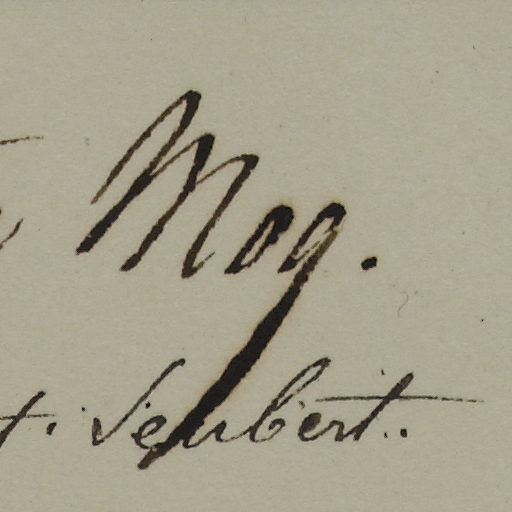 Moq.
t. Seubert.